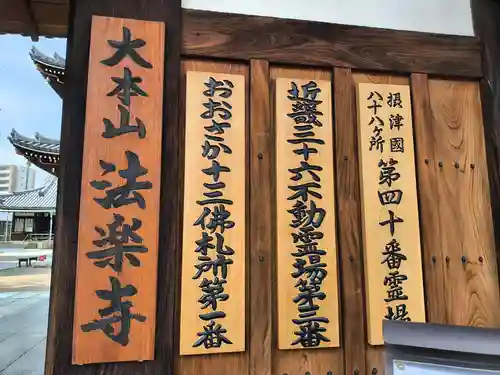 摂津国
八十八ヶ所
第四十番霊場
近畿三十六不動霊場第三番
おおさか十三佛札所第一番
大本山 法楽寺